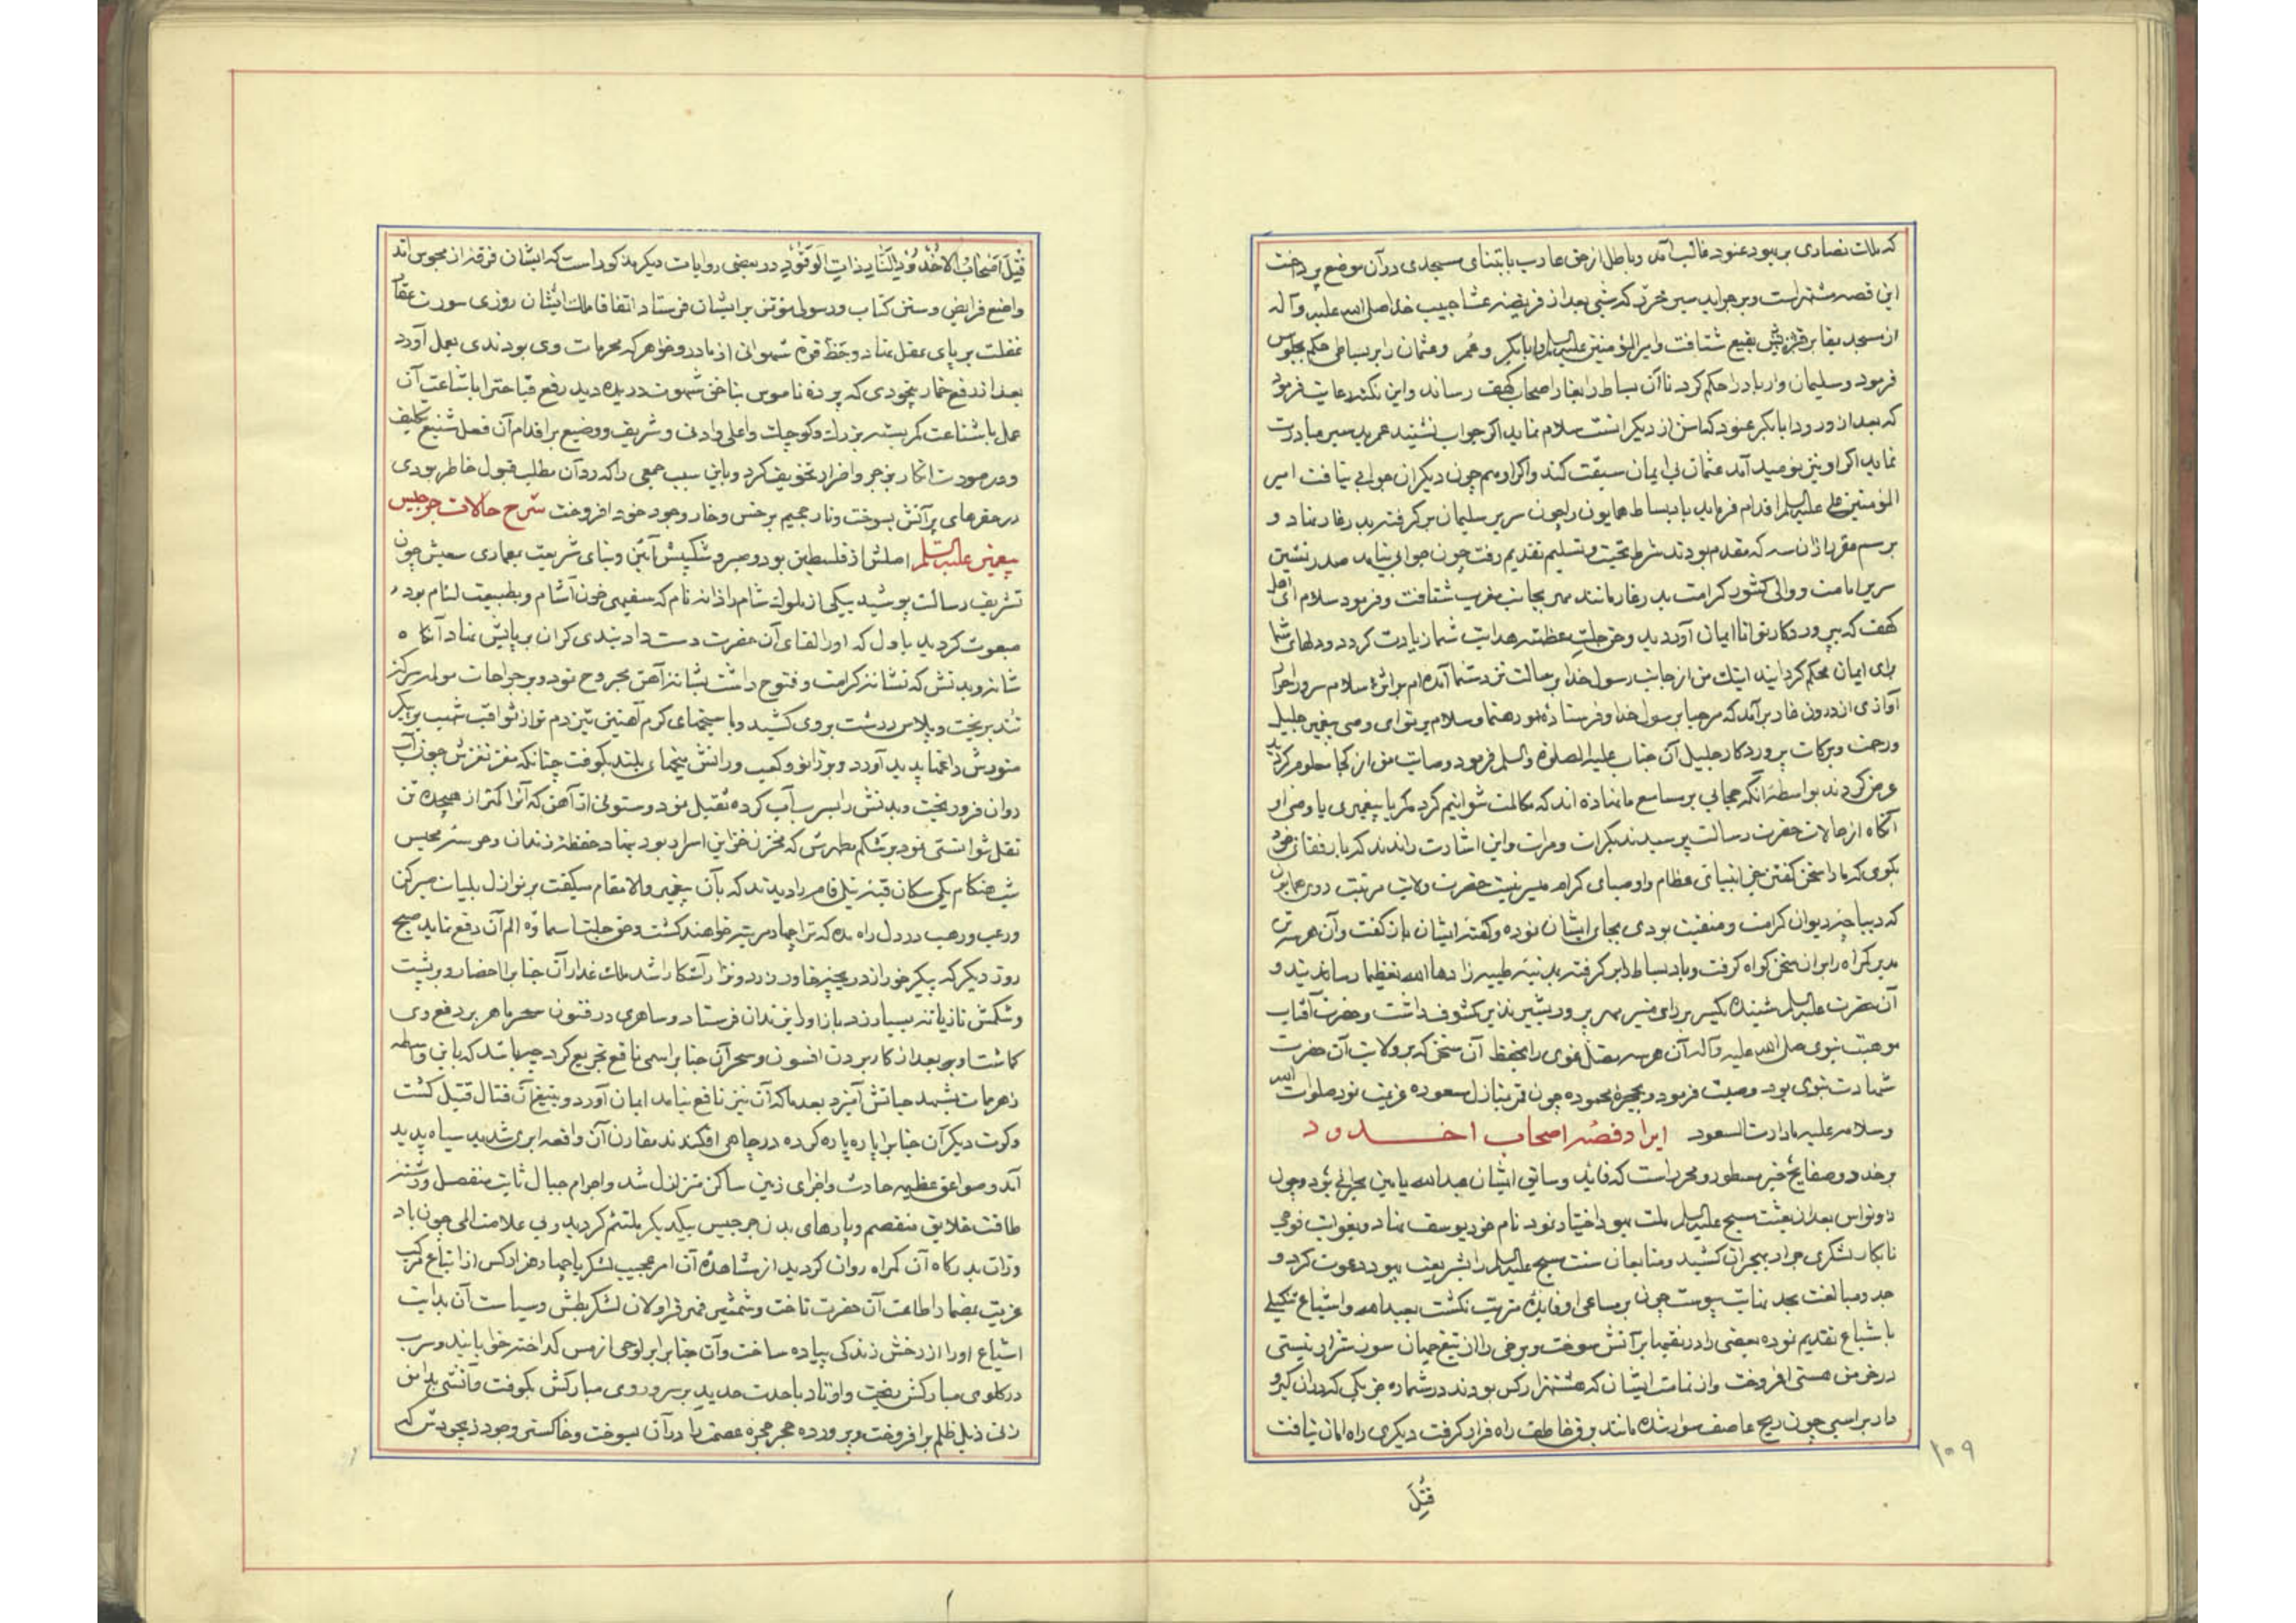 که ملت نصاری بر یهود عنود غالب آمد و باطل از حق هارب بابتنای مسجدی در آن موضع پرداخت
این قصه مشتهر است و بر جراید سیر محرّر که شبی بعد از فریضه عشا حبیب خدا صلی الله علیه و آله
از مسجد بمقابر بقیع شتافت و امیر المؤمنین علیه السلم و ابابکر و عمر و عثمان را بر بساطی حکم بجلوس
فرمود و سلیمان وار باد را حکم کرد تا آن بساط را بغار اصحاب کهف رساند و این نکته رعایت فرمود
که بعد از ورود ابابکر عنود که اسن از دیگرانست سلام نماید اگر جواب نشنید عمر بد سیر مبادرت
نماید اگر او نیز نومید آمد عثمان بی ایمان سبقت کند و اگر او هم چون دیگران جوابی نیافت امیر
المؤمنین علی علیه السلم اقدام فرماید باد بساط همایون را چون سریر سلیمان برگرفته بدر غار نهاد و
برسم مقرر از آن سه که مقدم بودند شرط تحیت و تسلیم تقدیم رفت چون جوابی نیامد صدر نشین
سریر امامت و والی کشور کرامت بدر غار مانند مهر بجانب مغرب شتافت و فرمود سلام ای اهل
کهف که بپروردکار توانا ایمان آوردید و حق جلت عظمته هدایت شما زیادت کرد و دلهای شما
برای ایمان محکم کردانید اینک من از جانب رسول خدا برسالت نزد شما آمده ام
آوازی از درون غار برآمد که مرحبا برسول خدا و فرستاده او رهنما و سلام بر تو ای وصی پیغمبر جلیل
و رحمت و برکات پروردکار جلیل آن جناب علیه الصلوة والسلم فرمود وصایت من از کجا معلوم کردید
عرض کردند بواسطه آنکه حجابی بر مسامع ما نهاده اند که مکالمت نتوانیم کرد مکر با پیغمبری یا وصی او
آنگاه از حالات حضرت رسالت پرسیدند بکرات و مرات و این اشارت راندند که با رفقای خود
بگوی که ما را سخن گفتن جز با انبیای عظام و اوصیای کرام میسر نیست حضرت ولایت مرتبت روی همایون
که دیباچه دیوان کرامت و منقبت بودی بجای ایشان نموده و گفته ایشان بازگفت و آن هر سه تن
مدبر گمراه را بر آن سخن گواه گرفت و باد بساط را برگرفته بمدینه طیبه زادها الله تعظیما رسانیدند و
آن حضرت علیه السلم شنیده یکسر بر رای منیر مهر پرور بشیر نذیر مکشوف داشت و حضرت آفتاب
موهبت نبوی صلی الله علیه و آله آن هر سه مضل غوی را بحفظ آن سخن که بر ولایت آن حضرت
شهادت نبوی بود وصیت فرمود و بحجره محموده چون قمر بمنازل مسعوده عزیمت نمود صلوات الله
وسلامه علیه مادارت السعود ایراد قصه اصحاب اخدود
بر خدود صفایح خبر مسطور و محرر است که قاید و سائق ایشان عبدالله یامین نجرانی بود و چون
ذونواس بعد از بعثت مسیح علیه السلم ملت یهود اختیار نمود نام خود یوسف نهاد و بغوایت فوجی
نابکار لشکری جرار بنجران کشید و متابعان سنت مسیح علیه السلم را بشریعت یهود دعوت کرد و
جد و مبالغت بحد نهایت پیوست چون بر مساعی او فایده مترتب نکشت بعبدالله و اشیاع تنکیلی
باشباع تقدیم نموده بعضی را در نقبها بر آتش سوخت و برخی را از تیغ چون شرار نیستی
در خرمن هستی افروخت و از تمامت ایشان که هشتهزار کس بودند در شماره جز یکی که در آن گیرو
دار بر اسبی چون ریح عاصف سوار شده مانند برق خاطف راه فرار گرفت دیگری راه امان نیافت
۱۰۹
قُتِلَ
قُتِلَ اَصْحَابُ الْاُخْدُودِ النَّارِ ذَاتِ الْوَقُودِ در بعضی روایات دیگر مذکور است که ایشان فرقه از مجوس اند
واضع فرایض و سنن کتاب و رسولی مؤتمن بر ایشان فرستاد اتفاقا ملک ایشان روزی سورت عقار
غفلت بر پای عقل نهاد و حظ قوه شهوانی از مادر و خواهر که محرمات وی بودندی بعمل آورد
بعد از رفع خمار بیخودی که پرده ناموس بناخن شهوت دریده دید رفع قباحت را باشاعت آن
عمل با شناعت کمر بسته بزرک و کوچک و اعلی و ادنی و شریف و وضیع بر اقدام آن فعل شنیع تکلیف
و در صورت انکار بزجر و اضرار تخویف کرد و باین سبب جمعی را که رد آن مطلب قبول خاطر بودی
در حفرهای پر آتش بسوخت و نار جحیم بر خس و خار وجود خود افروخت شرح حالات جرجیس
پیغمبر علیه السلم اصلش از فلسطین بود و صبر و شکیبش آئین و بنای شریعت بمعماری سعیش چون
تشریف رسالت پوشید بیکی از ملوک شام راذانه نام که سفیهی خون آشام و بطبیعت لئام بود
مبعوث گردید باول که او را لقای آن حضرت دست داد بندی گران بر پایش نهاد آنگاه
شانه و بدنش که نشانه کرامت و فتوح داشت بشانه آهن مجروح نمود و بر جراحات مولد سرکه
تند بریخت و پلاس درشت بروی کشید و با سیخهای گرم آهنین تیز دم تر از ثواقب شهب بر پیکر
منورش داغها پدید آورد و بر زانو و کعب و رانش میخهای بلند بکوفت چنانکه مغز نغزش چون آب
روان فرو ریخت و بدنش را بسرب آب کرده ثقیل نمود و ستونی از آهن که آنرا کمتر از هیجده تن
نقل نتوانستی نمود بر شکم مطهرش که مخزن خزاین اسرار بود بنهاد حفظه زندان و حرسه محبس
شب هنگام یکی سکان قبه نیلی فام را دیدند که بآن پیغمبر والا مقام میگفت بر نوازل بلیات صبر کن
و رعب و رهب در دل راه مده که ترا چهار مرتبه خواهند کشت و حق جلت اسماؤه الم آن دفع نماید صبح
روز دیگر که پیکر خور از دریچه خاور آشکارا شد ملک غدار آن جناب را احضار و بر پشت
و شکمش تازیانه بسیار زد باز او را بزندان فرستاد و ساحری در فنون سحر ماهر بر دفع وی
گماشت او بعد از کار بردن افسون و سحر آن جناب را سمی ناقع تجریع کرد باشد که باین واسطه
زهر ممات بشهد حیاتش آمیزد بعد ما که آن نیز نافع نیامد ایمان آورد و بتیغ آن قتال قتیل گشت
و کرت دیگر آن جناب را پاره پاره کرده در چاهی افکندند مقارن آن واقعه ابری شدید سیاه پدید
آمد و صواعق عظیمه حادث و اجزای زمین ساکن متزلزل شد و اجرام جبال ثابت منفصل و رشته
طاقت خلایق منفصم و پارهای بدن جرجیس بیکدیگر ملتئم گردید و بی علامت المی چون باد
وزان بدرگاه آن گمراه روان گردید از مشاهده آن امر عجیب لشکر با چهار هزار کس از اتباع مرکب
عزیمت بمضمار اطاعت آن حضرت تاخت و شمشیر قراولان لشکر بطش و سیاست آن بدایت
اشیاع او را از رخش زندگی پیاده ساخت و آن جناب را بر لوحی از مس گداخته خوابانید و سرب
در گلوی مبارکش بریخت و اوتاد با حدت حدید بر سر و روی مبارکش بکوفت و آتشی بدامن
ذیل ظلم برافروخت و پرورده حجر حجره عصمت را در آن بسوخت و خاکستر وجود ذیجودش که